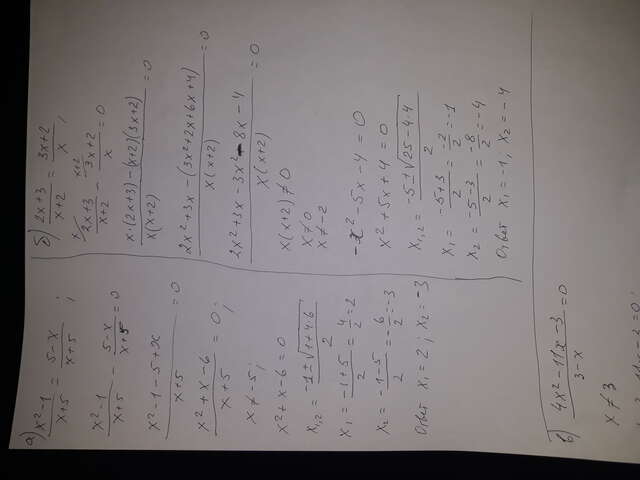 а) x²-1/x+5 = 5-x/x+5 ;
x²-1/x+5 - 5-x/x+5 = 0
x²-1-5+x/x+5 = 0
x²+x-6/x+5 = 0 ;
x ≠ -5 ;
x²+x-6=0
x₁,₂ = -1±√1+4·6/2
x₁ = -1+5/2 = 4/2 = 2
x₂ = -1-5/2 = -6/2 = -3
Ответ x₁=2 ; x₂=-3
б) 2x+3/x+2 = 3x+2/x ,
x/ 2x+3/x+2 - x+2/ 3x+2/x = 0
x·(2x+3)-(x+2)(3x+2)/x(x+2) = 0
2x²+3x-(3x²+2x+6x+4)/x(x+2) = 0
2x²+3x-3x²-8x-4/x(x+2) = 0
x(x+2) ≠ 0
x ≠ 0
x ≠ -2
-x²-5x-4=0
x²+5x+4=0
x₁,₂ = -5±√25-4·4/2
x₁ = -5+3/2 = -2/2 = -1
x₂ = -5-3/2 = -8/2 = -4
Ответ x₁=-1, x₂=-4
в) 4x²-11x-3/3-x = 0
x ≠ 3